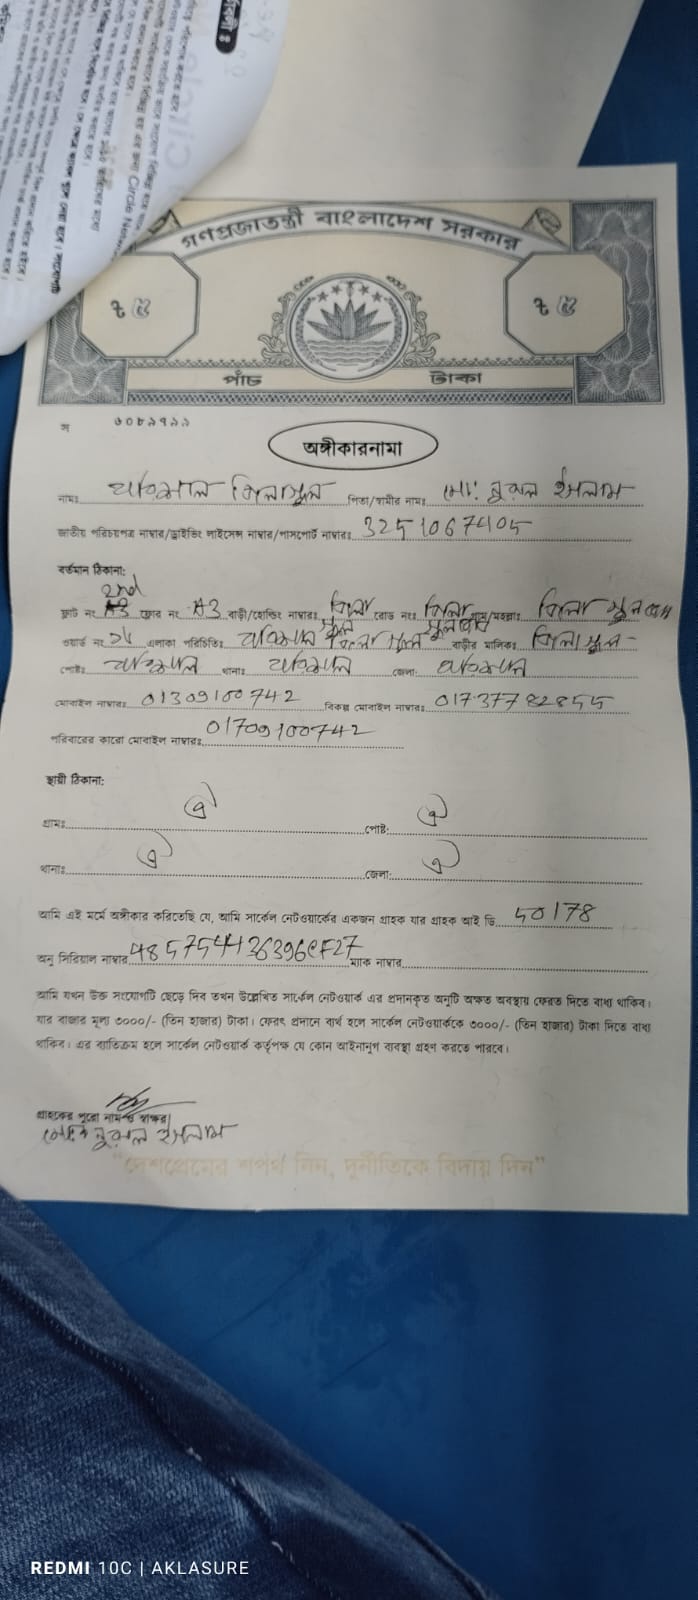 গণপ্রজাতন্ত্রী বাংলাদেশ সরকার
৳ ৫ ৳ ৫
পাঁচ টাকা
অঙ্গীকারনামা
নামঃ বরিশাল জিলা স্কুল পিতা/স্বামীর নামঃ মোঃ নুরুল ইসলাম
জাতীয় পরিচয়পত্র নাম্বার/ড্রাইভিং লাইসেন্স নাম্বার/পাসপোর্ট নাম্বারঃ 3251067405
বর্তমান ঠিকানা:
2nd
ফ্লাট নং A3 ফ্লোর নং A3 বাড়ী/হোল্ডিং নাম্বারঃ জিলা স্কুল রোড নংঃ জিলা স্কুল গ্রাম/মহল্লাঃ জিলা স্কুল
ওয়ার্ড নং এলাকা পরিচিতিঃ বরিশাল জিলা স্কুল বাড়ীর মালিকঃ জিলা স্কুল
পোষ্টঃ বরিশাল থানাঃ বরিশাল জেলা: বরিশাল
মোবাইল নাম্বারঃ 01309100742 বিকল্প মোবাইল নাম্বারঃ 01737782855
পরিবারের কারো মোবাইল নাম্বারঃ 01709100742
স্থায়ী ঠিকানা:
গ্রামঃ ঐ পোষ্ট: ঐ
থানাঃ ঐ জেলা: ঐ
আমি এই মর্মে অঙ্গীকার করিতেছি যে, আমি সার্কেল নেটওয়ার্কের একজন গ্রাহক যার গ্রাহক আই ডি 50178
অনু সিরিয়াল নাম্বার ম্যাক নাম্বার
আমি যখন উক্ত সংযোগটি ছেড়ে দিব তখন উল্লেখিত সার্কেল নেটওয়ার্ক এর প্রদানকৃত অনুটি অক্ষত অবস্থায় ফেরত দিতে বাধ্য থাকিব।
যার বাজার মূল্য ৩০০০/- (তিন হাজার) টাকা। ফেরৎ প্রদানে ব্যর্থ হলে সার্কেল নেটওয়ার্ককে ৩০০০/- (তিন হাজার) টাকা দিতে বাধ্য
থাকিব। এর ব্যতিক্রম হলে সার্কেল নেটওয়ার্ক কর্তৃপক্ষ যে কোন আইনানুগ ব্যবস্থা গ্রহণ করতে পারবে।
গ্রাহকের পুরো নাম ও স্বাক্ষর
মোঃ নুরুল ইসলাম
"দেশপ্রেমের শপথ নিন, দুর্নীতিকে বিদায় দিন"
REDMI 10C | AKLASURE